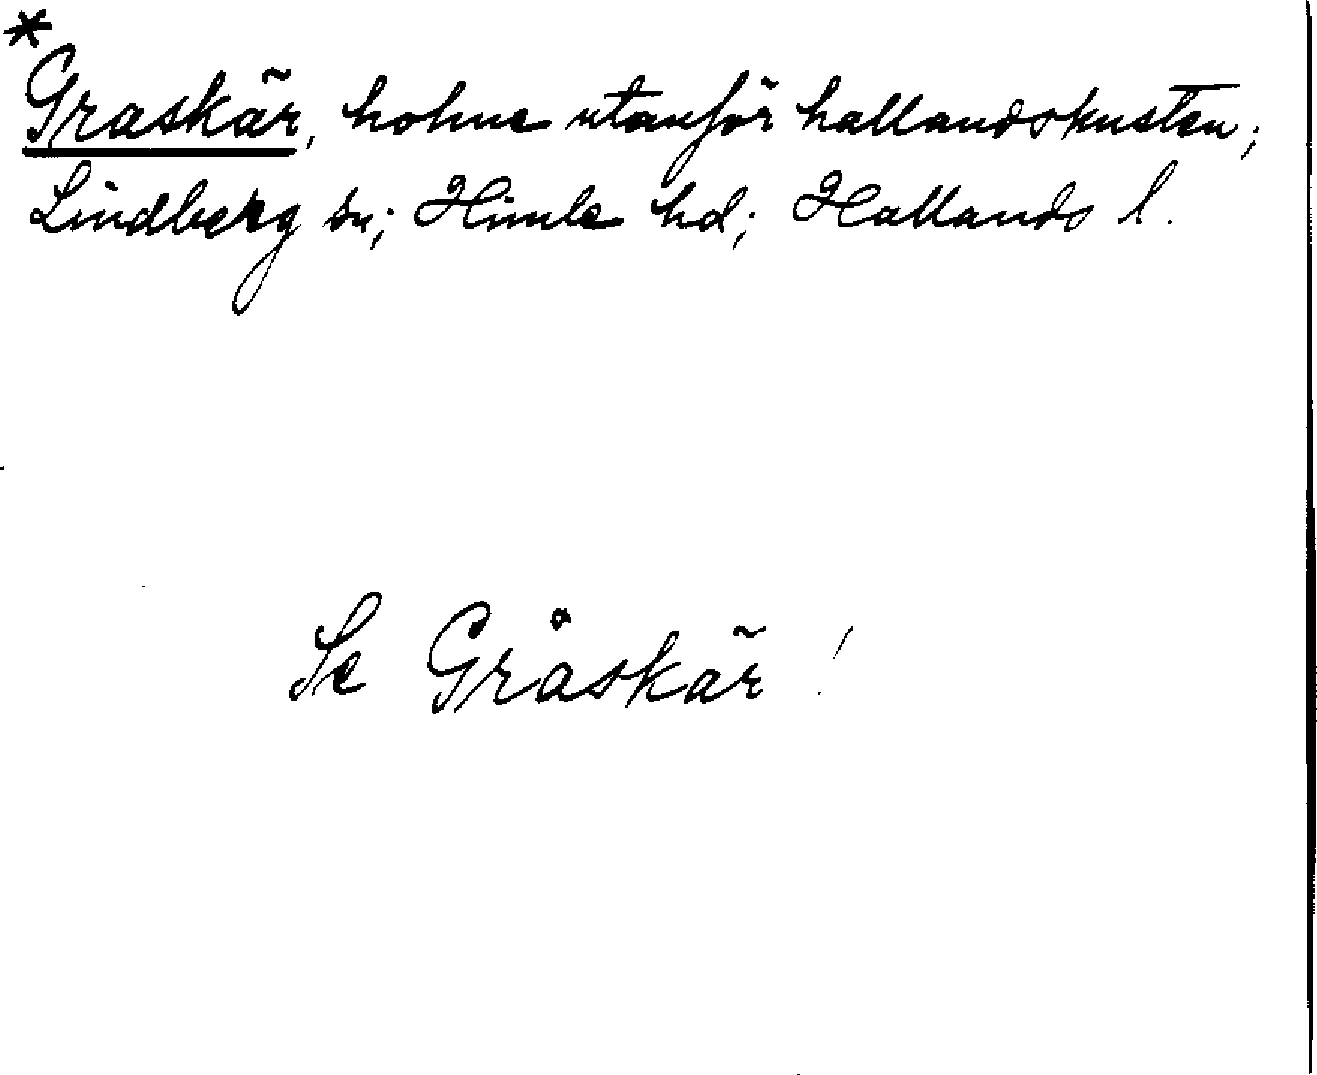 *
Graskär, holme utanför hallandskusten;
Lindberg sn; Himle hd; Hallands l.
Se Gråskär!